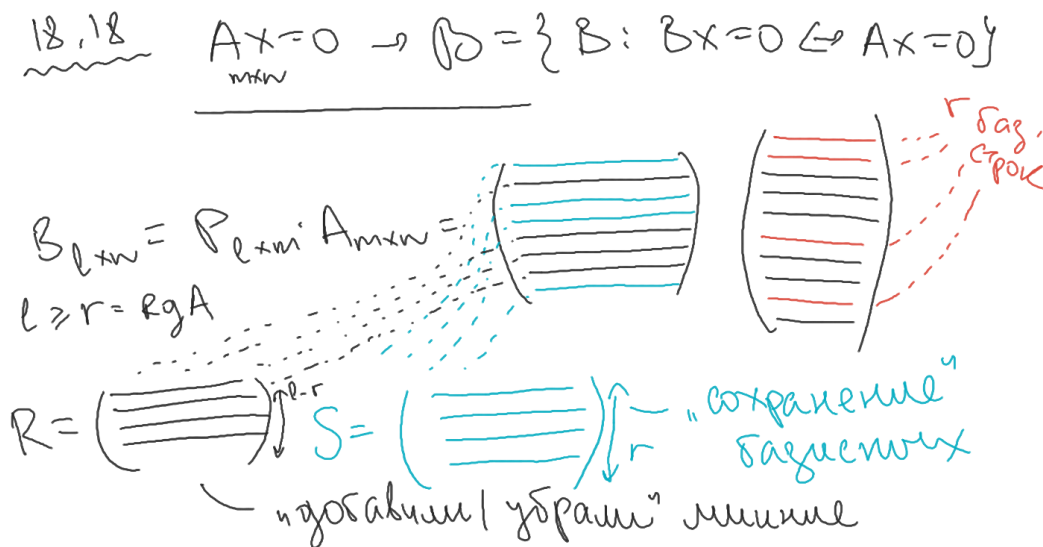 18.18 A x = 0 → B = { B : Bx = 0 ⇔ Ax = 0 }
m×n
r баз.
строк
B l×n = P l×m · A m×n =
l ≥ r = Rg A
R = ( ) l-r S = ( ) r „сохранение"
базисных
„добавили / убрали" лишние